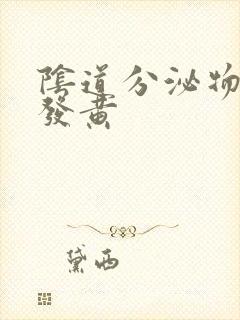 陰道分泌物
發黃
黛西